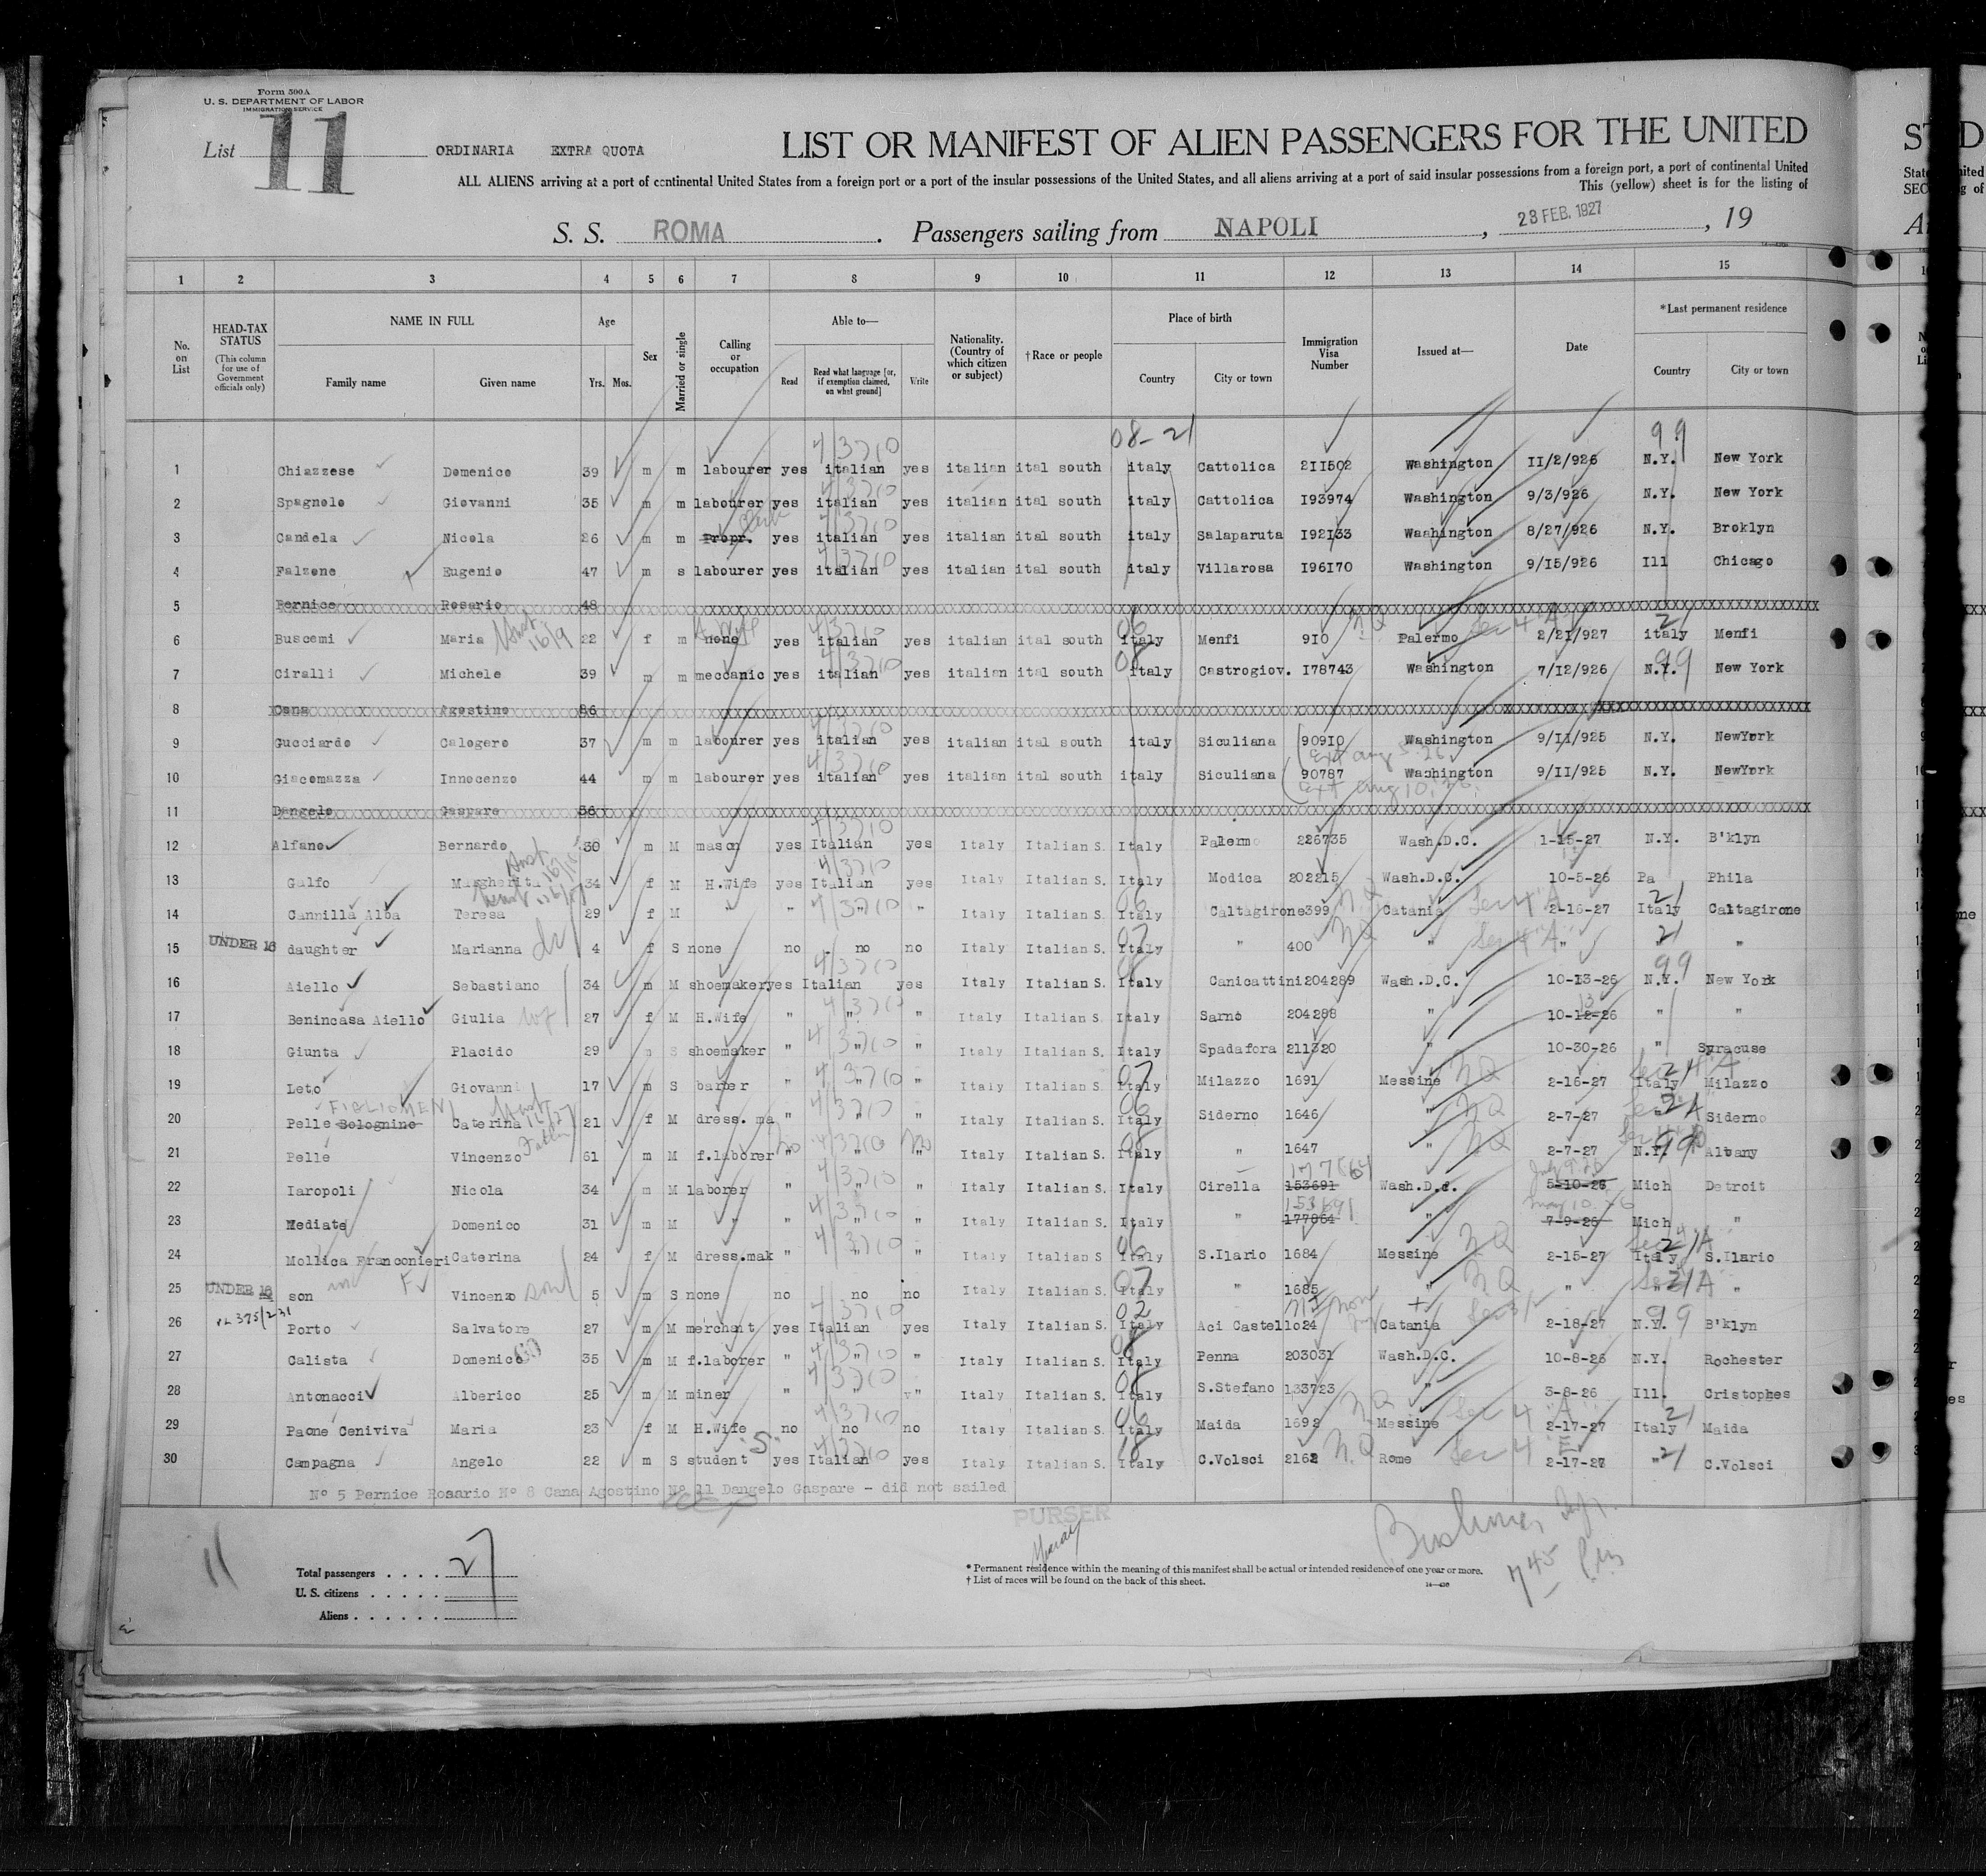 Form 500A
U. S. DEPARTMENT OF LABOR
IMMIGRATION SERVICE
List 11 ORDINARIA EXTRA QUOTA
LIST OR MANIFEST OF ALIEN PASSENGERS FOR THE UNITED
ALL ALIENS arriving at a port of continental United States from a foreign port or a port of the insular possessions of the United States, and all aliens arriving at a port of said insular possessions from a foreign port, a port of continental United
This (yellow) sheet is for the listing of
S. S. ROMA. Passengers sailing from NAPOLI, 28 FEB. 1927, 19
1 2 3 4 5 6 7 8 9 10 11 12 13 14 15
No. on List
HEAD-TAX STATUS (This column for use of Government officials only)
NAME IN FULL Family name Given name
Age Yrs. Mos.
Sex
Married or single
Calling or occupation
Able to— Read Read what language [or, if exemption claimed, on what ground] Write
Nationality. (Country of which citizen or subject)
†Race or people
Place of birth Country City or town
Immigration Visa Number
Issued at—
Date
*Last permanent residence Country City or town
08-21 99
1 Chiazzese Domenico 39 m m labourer yes italian yes italian ital south italy Cattolica 211502 Washington 11/2/926 N.Y. New York
2 Spagnolo Giovanni 35 m m labourer yes italian yes italian ital south italy Cattolica I93974 Washington 9/3/926 N.Y. New York
3 Candela Nicola 26 m m Propr. Clerk yes italian yes italian ital south italy Salaparuta I92I33 Washington 8/27/926 N.Y. Broklyn
4 Falzone Eugenio 47 m s labourer yes italian yes italian ital south italy Villarosa I96I70 Washington 9/I5/926 Ill Chicago
5 Pernice Rosario 48
6 Buscemi Maria 22 f m none yes italian yes italian ital south italy Menfi 9I0 N.Q. Palermo Sec 4 "A" 2/21/927 italy Menfi
7 Ciralli Michele 39 m m meccanic yes italian yes italian ital south italy Castrogiov. I78743 Washington 7/I2/926 N.Y. New York
8 Cana Agostino 36
9 Gucciardo Calogero 37 m m labourer yes italian yes italian ital south italy Siculiana 909I0 Washington 9/II/925 N.Y. NewYork
10 Giacomazza Innocenzo 44 m m labourer yes italian yes italian ital south italy Siculiana 90787 Washington 9/II/925 N.Y. NewYork
11 Dangelo Gaspare 36
12 Alfano Bernardo 30 m M mason yes Italian yes Italy Italian S. Italy Palermo 226735 Wash.D.C. 1-15-27 N.Y. B'klyn
13 Galfo Margherita 34 f M H.Wife yes Italian yes Italy Italian S. Italy Modica 202215 Wash.D.C. 10-5-26 Pa Phila
14 Cannilla Alba Teresa 29 f M " " " " Italy Italian S. Italy Caltagirone 399 N.Q. Catania Sec 4 "A" 2-16-27 Italy Caltagirone
UNDER 16
15 daughter Marianna 4 f S none no no no Italy Italian S. Italy " 400 N.Q. " Sec 4 "A" " 21 "
16 Aiello Sebastiano 34 m M shoemaker yes Italian yes Italy Italian S. Italy Canicattini 204289 Wash.D.C. 10-13-26 N.Y. New York
17 Benincasa Aiello Giulia 27 f M H.Wife " " " Italy Italian S. Italy Sarno 204288 " 10-12-26 " "
18 Giunta Placido 29 m S shoemaker " " " Italy Italian S. Italy Spadafora 211320 " 10-30-26 " Syracuse
19 Leto Giovanni 17 m S barber " " " Italy Italian S. Italy Milazzo 1691 Messine N.Q. 2-16-27 Italy Milazzo
20 Pelle Bolognino Caterina 21 f M dress. ma " " " Italy Italian S. Italy Siderno 1646 " N.Q. 2-7-27 Siderno
21 Pelle Vincenzo Father 61 m M f.laborer " " " Italy Italian S. Italy " 1647 " N.Q. 2-7-27 N.Y. Albany
22 Iaropoli Nicola 34 m M laborer " " " Italy Italian S. Italy Cirella 153691 177864 Wash.D.C. 5-10-26 Mich Detroit
23 Mediate Domenico 31 m M " " " " Italy Italian S. Italy " 177864 153691 " 7-9-26 May 10, 26 Mich "
24 Mollica Franconieri Caterina 24 f M dress.mak " " " Italy Italian S Italy S.Ilario 1684 Messine N.Q. 2-15-27 Italy S.Ilario
UNDER 16
25 son Vincenzo son 5 m S none no no no Italy Italian S. Italy " 1685 " N.Q. " " "
26 Porto Salvatore 27 m M merchant yes Italian yes Italy Italian S. Italy Aci Castello 24 Catania 2-18-27 N.Y. B'klyn
27 Calista Domenico 35 m M f.laborer " " " Italy Italian S. Italy Penna 203031 Wash.D.C. 10-8-26 N.Y. Rochester
28 Antonacci Alberico 25 m M miner " " " Italy Italian S. Italy S.Stefano 133723 " 3-8-26 Ill. Cristophes
29 Paone Ceniviva Maria 23 f M H.Wife no no no Italy Italian S. Italy Maida 1692 N.Q. Messine Sec 4 "A" 2-17-27 Italy Maida
30 Campagna Angelo 22 m S student "S" yes Italian yes Italy Italian S. Italy C.Volsci 2162 N.Q. Rome Sec 4 "E" 2-17-27 " C.Volsci
Nº 5 Pernice Rosario Nº 8 Cana Agostino Nº 11 Dangelo Gaspare - did not sailed
PURSER
11
Total passengers . . . . 27
U. S. citizens . . . . .
Aliens . . . . . .
* Permanent residence within the meaning of this manifest shall be actual or intended residence of one year or more.
† List of races will be found on the back of this sheet.
7 45 Pm